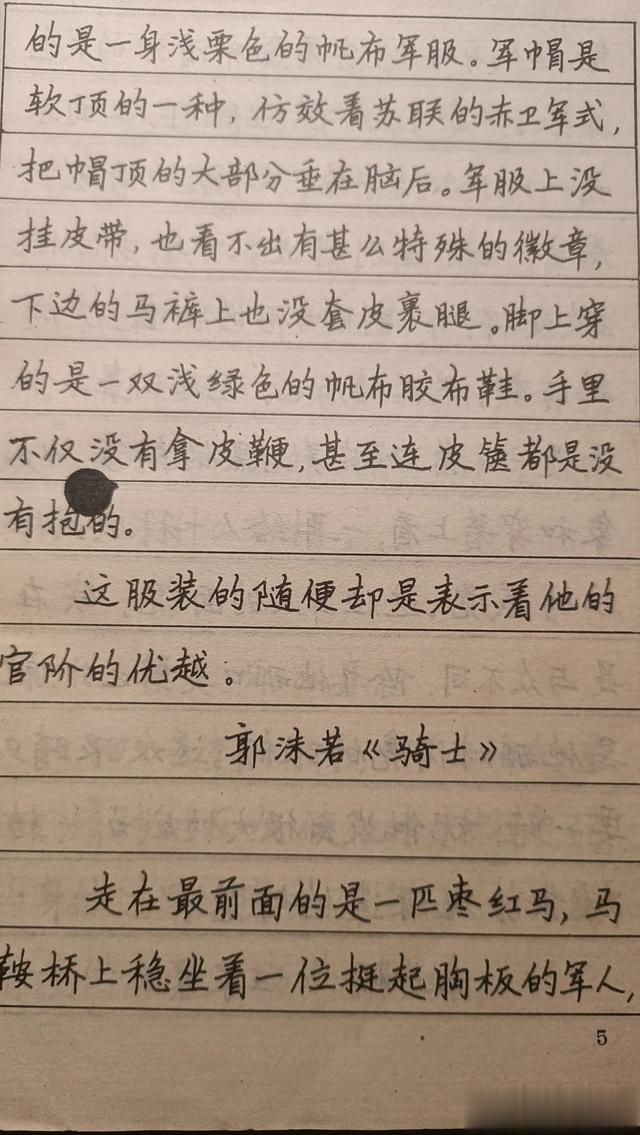 的是一身浅栗色的帆布军服。军帽是
软顶的一种，仿效着苏联的赤卫军式，
把帽顶的大部分垂在脑后。军服上没
挂皮带，也看不出有甚么特殊的徽章，
下边的马裤上也没套皮裹腿。脚上穿
的是一双浅绿色的帆布胶布鞋。手里
不仅没有拿皮鞭，甚至连皮箧都是没
有抱的。
这服装的随便却是表示着他的
官阶的优越。
郭沫若《骑士》
走在最前面的是一匹枣红马，马
鞍桥上稳坐着一位挺起胸板的军人，
5